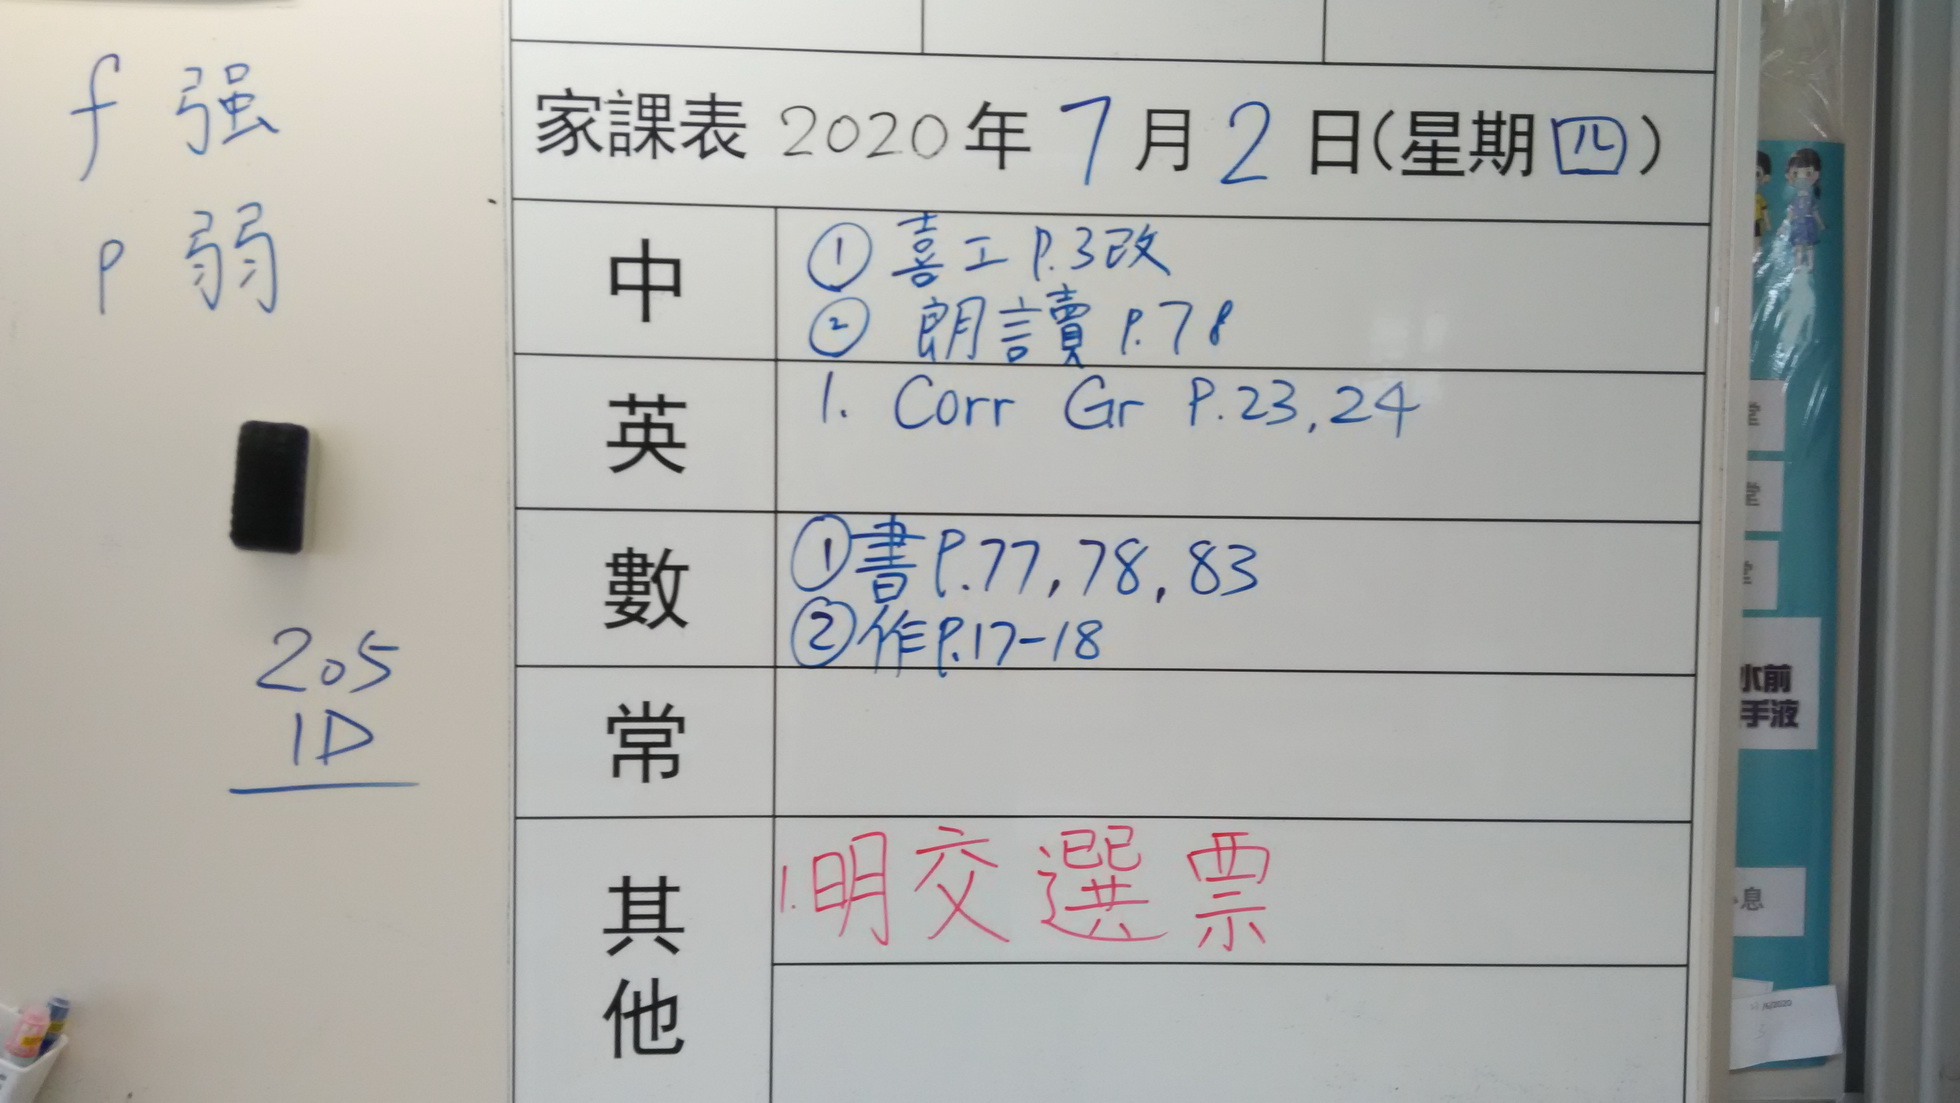 f 强
p 弱
205
1D
家課表 2020年 7月 2日(星期四)
中
① 喜工 P.3改
② 朗讀 P.78
英
1. Corr Gr P.23,24
數
①書P.77,78,83
②作P.17-18
常
其他
1.明交選票
水前
手液
息